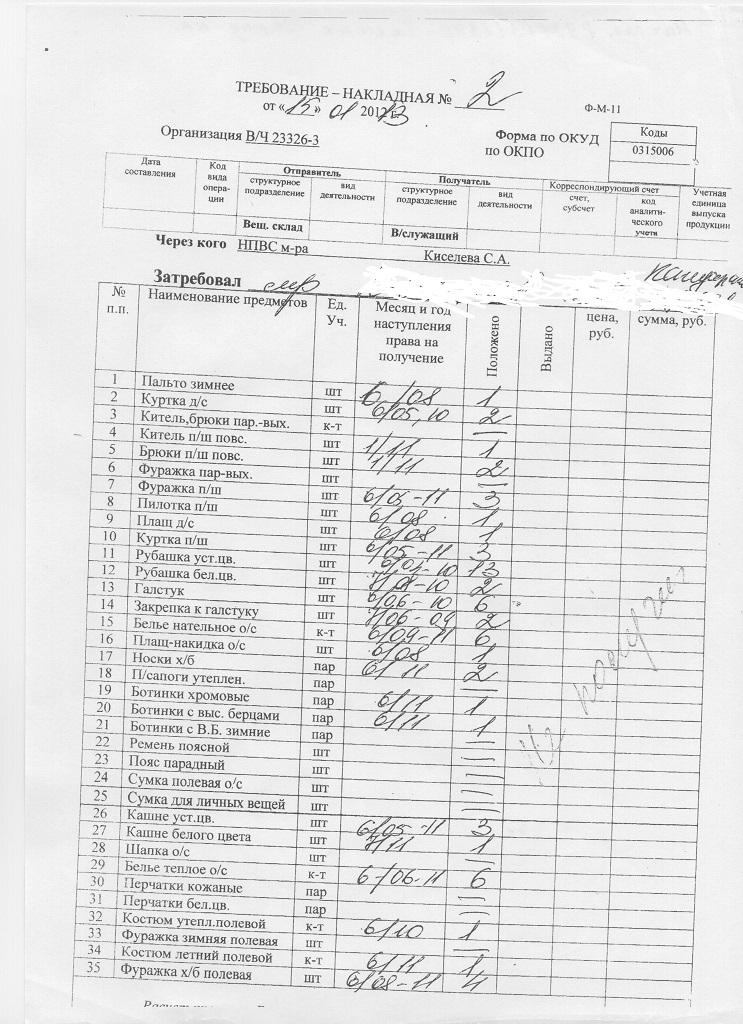 ТРЕБОВАНИЕ – НАКЛАДНАЯ № 2
от «15» 01 2013
Ф-М-11
Организация В/Ч 23326-3
Форма по ОКУД
по ОКПО
Коды
0315006
Дата составления
Код вида опера-ции
Отправитель
Получатель
Корреспондирующий счет
Учетная единица выпуска продукции
структурное подразделение
вид деятельности
структурное подразделение
вид деятельности
счет, субсчет
код аналити-ческого учета
Вещ. склад
В/служащий
Через кого НПВС м-ра Киселева С.А.
Затребовал
№ п.п. Наименование предметов Ед. Уч. Месяц и год наступления права на получение Положено Выдано цена, руб. сумма, руб.
1 Пальто зимнее шт 6/08 1
2 Куртка д/с шт 6/05, 10 2
3 Китель,брюки пар.-вых. к-т —
4 Китель п/ш повс. шт 1/11 1
5 Брюки п/ш повс. шт 1/11 2
6 Фуражка пар-вых. шт —
7 Фуражка п/ш шт 6/05-11 3
8 Пилотка п/ш шт 6/08 1
9 Плащ д/с шт 6/08 1
10 Куртка п/ш шт 6/05-11 3
11 Рубашка уст.цв. шт 6/01-10 13
12 Рубашка бел.цв. шт 7/01-10 2
13 Галстук шт 6/06-10 6
14 Закрепка к галстуку шт 7/06-09 2
15 Белье нательное о/с к-т 6/09-11 6
16 Плащ-накидка о/с шт 6/08 1
17 Носки х/б пар 6/11 2
18 П/сапоги утеплен. пар —
19 Ботинки хромовые пар 6/11 1
20 Ботинки с выс. берцами пар 6/11 1
21 Ботинки с В.Б. зимние пар —
22 Ремень поясной шт —
23 Пояс парадный шт —
24 Сумка полевая о/с шт —
25 Сумка для личных вещей шт —
26 Кашне уст.цв. шт 6/05-11 3
27 Кашне белого цвета шт 7/11 1
28 Шапка о/с шт —
29 Белье теплое о/с к-т 6/06-11 6
30 Перчатки кожаные пар —
31 Перчатки бел.цв. пар —
32 Костюм утепл.полевой к-т 6/10 1
33 Фуражка зимняя полевая шт —
34 Костюм летний полевой к-т 6/11 1
35 Фуражка х/б полевая шт 6/08-11 4